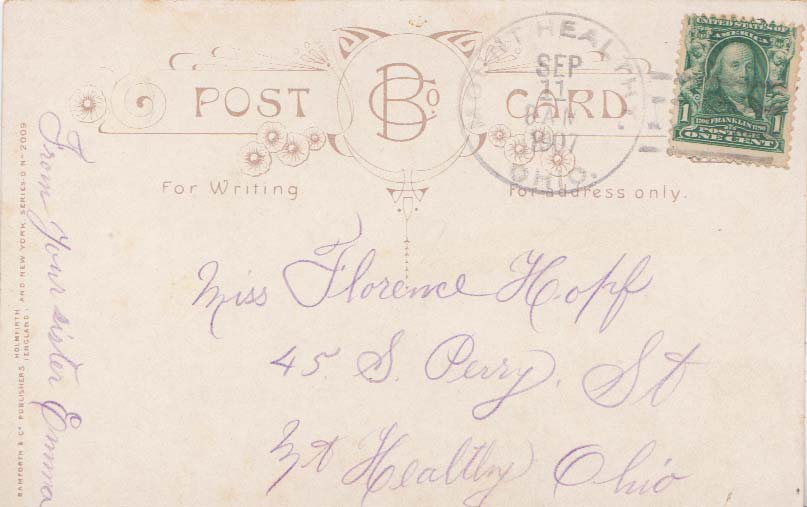 POST CARD
BCo.
For Writing
For address only.
MOUNT HEALTHY,
SEP
11
1907
OHIO.
UNITED STATES OF AMERICA
1 FRANKLIN 1
POSTAGE
ONE CENT
Miss Florence Hopf
45 S. Perry. St
Mt Healthy Ohio
From your sister Emma
BAMFORTH & Co PUBLISHERS HOLMFIRTH (ENGLAND) AND NEW YORK. SERIES-D No 2009